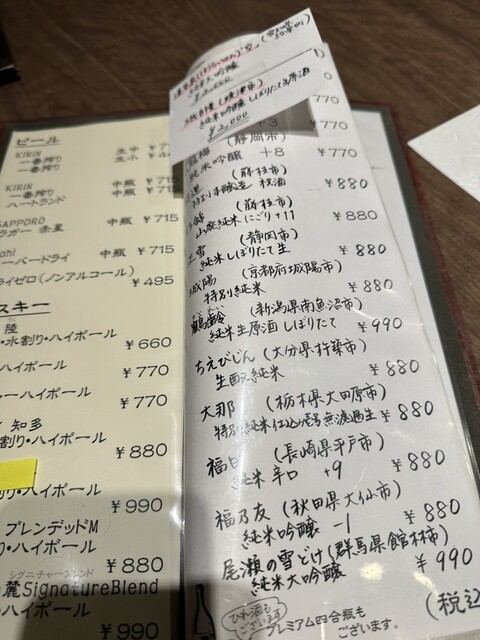 ビール
KIRIN
一番搾り 生中
一番搾り 生小
KIRIN
一番搾り 中瓶 ¥715
ハートランド 中瓶 ¥715
SAPPORO
ラガー 赤星 中瓶 ¥715
ーパードライ 中瓶 ¥715
ゼロ(ノンアルコール) ¥495
スキー
陸
水割り・ハイボール ¥660
ハイボール ¥770
ーハイボール ¥770
知多
割り・ハイボール ¥880
り・ハイボール ¥990
ブレンデッドM
り・ハイボール ¥880
シグニチャーブレンド
麓SignatureBlend
・ハイボール ¥990
純米大吟醸
純米吟醸 しぼりたて生原酒
¥2,000
¥770
(静岡市)
純米吟醸 +8 ¥770
(藤枝市)
特別本醸造 秋酒 ¥880
(藤枝市)
山廃純米 にごり +11 ¥880
(静岡市)
純米しぼりたて生 ¥880
城陽 (京都府城陽市)
特別純米 ¥880
鶴齢 (新潟県南魚沼市)
純米生原酒 しぼりたて ¥990
ちえびじん (大分県杵築市)
生酛純米 ¥880
大那 (栃木県大田原市)
特別純米 仕込壱号 無濾過生 ¥880
福田 (長崎県平戸市)
純米 辛口 +9 ¥880
福乃友 (秋田県大仙市)
純米吟醸 -1 ¥880
尾瀬の雪どけ (群馬県館林市)
純米大吟醸 ¥990
(税込
ひれ酒も
ございます
プレミアム四合瓶も
ございます。